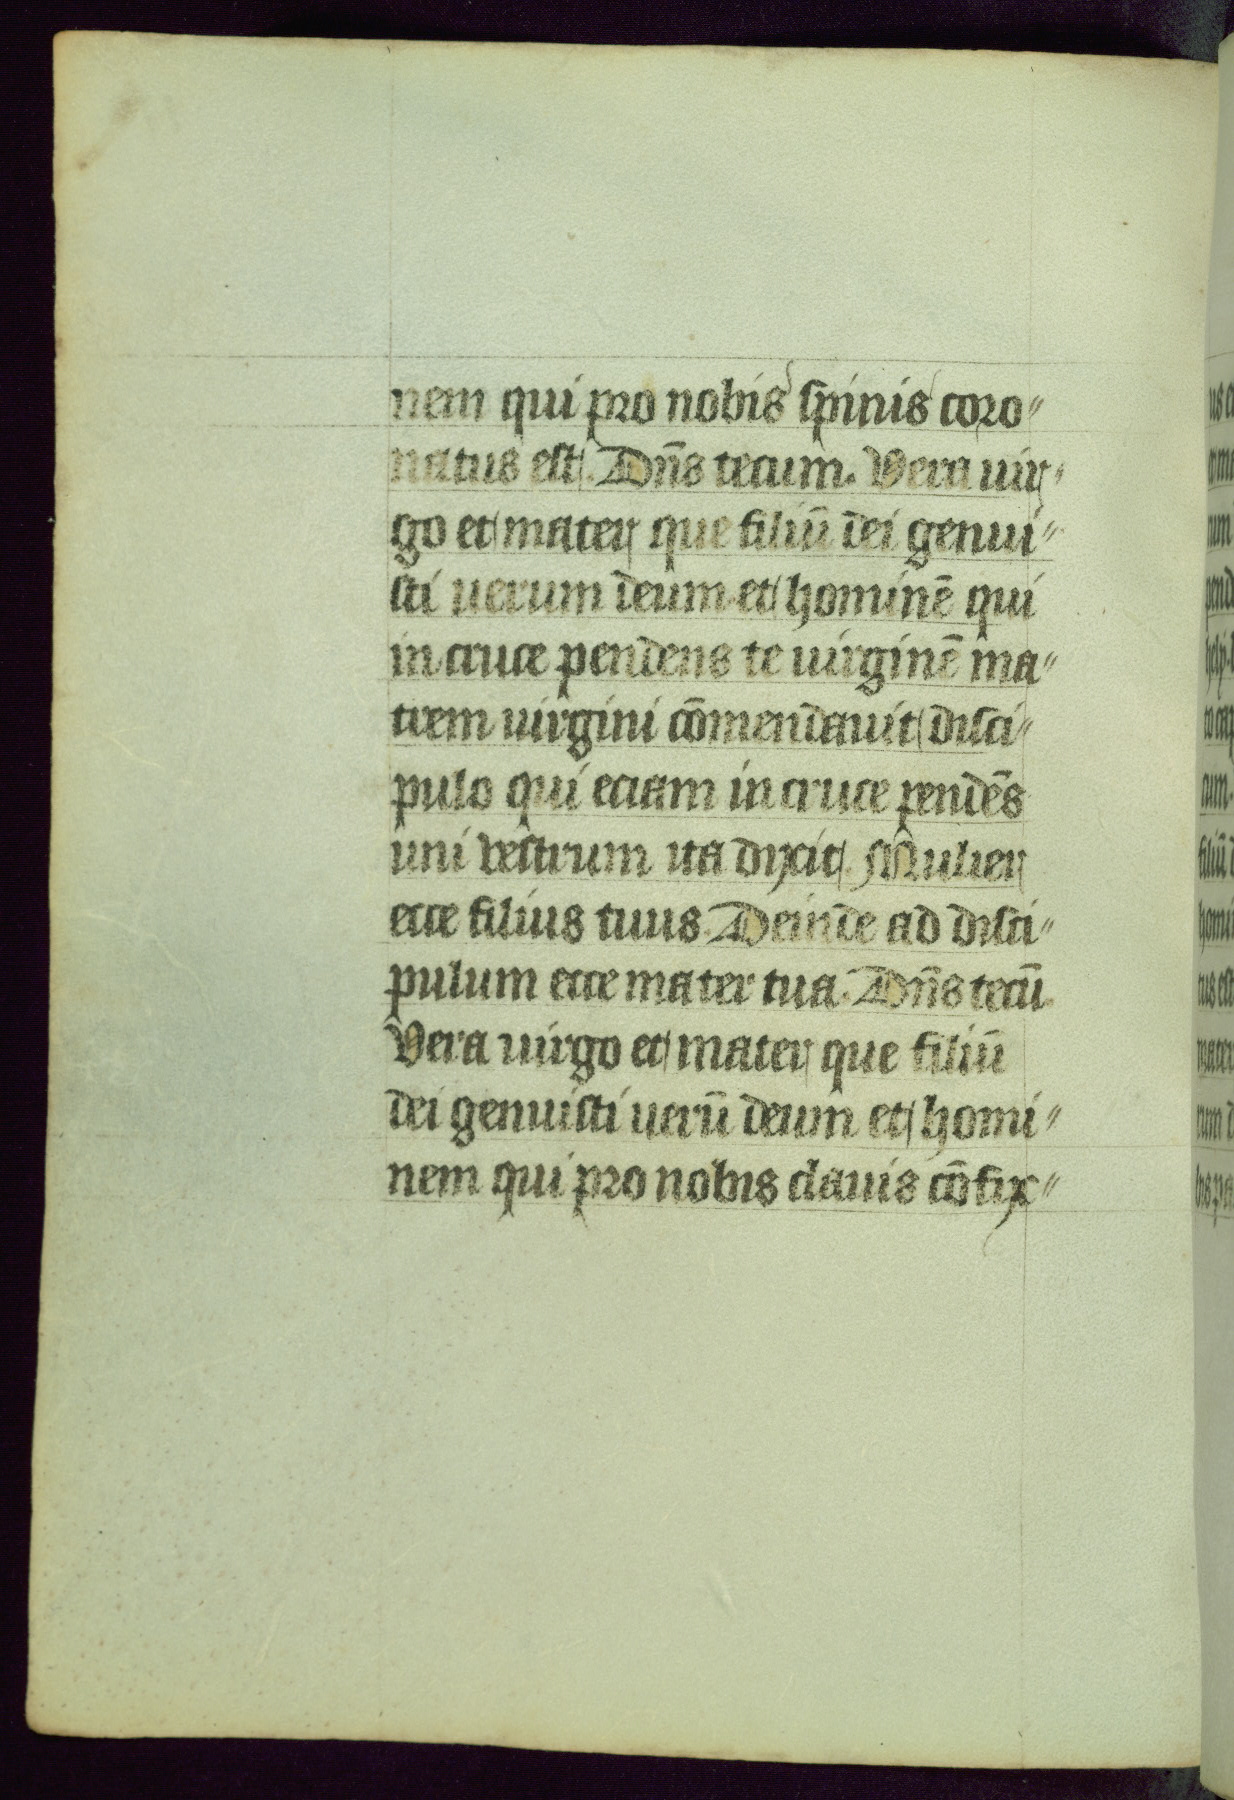 nem qui pro nobis spinis coro"
natus est. Dn̄s tecum. Vera uir"
go et mater que filiū dei genui"
sti uerum deum et hominē qui
in cruce pendens te uirginē ma"
trem uirgini cōmendauit disci"
pulo qui eciam in cruce pendēs
uni vestrum ita dixit. Mulier
ecce filius tuus. Deinde ad disci"
pulum ecce mater tua. Dn̄s tecū.
Vera uirgo et mater que filiū
dei genuisti uerū deum et homi"
nem qui pro nobis clauis cōfix"